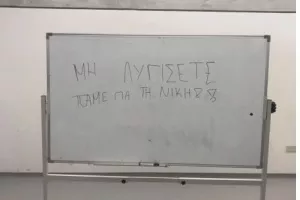 ΜΗ ΛΥΓΙΣΕΤΕ
ΠΑΜΕ ΓΙΑ ΤΗ ΝΙΚΗ 8 8